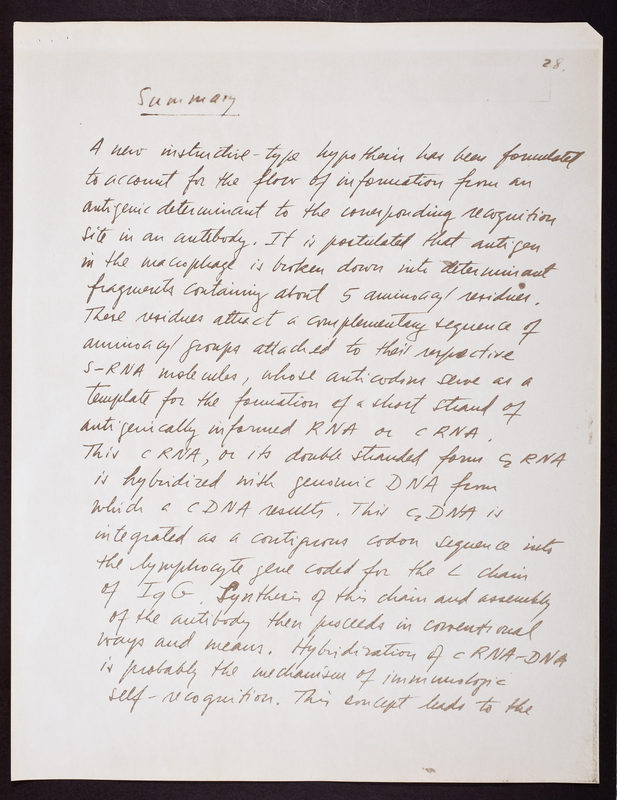 28.
Summary
A new instructive-type hypothesis has been formulated
to account for the flow of information from an
antigenic determinant to the corresponding recognition
site in an antibody. It is postulated that antigen
in the macrophage is broken down into determinant
fragments containing about 5 aminoacyl residues.
These residues attract a complementary sequence of
aminoacyl groups attached to their respective
S-RNA molecules, whose anticodons serve as a
template for the formation of a short strand of
antigenically informed RNA or cRNA.
This cRNA, or its double stranded form c₂RNA
is hybridized with genomic DNA from
which a cDNA results. This c₂DNA is
integrated as a contiguous codon sequence into
the lymphocyte gene coded for the L chain
of IgG. Synthesis of this chain and assembly
of the antibody then proceeds in conventional
ways and means. Hybridization of cRNA-DNA
is probably the mechanism of immunologic
self-recognition. This concept leads to the